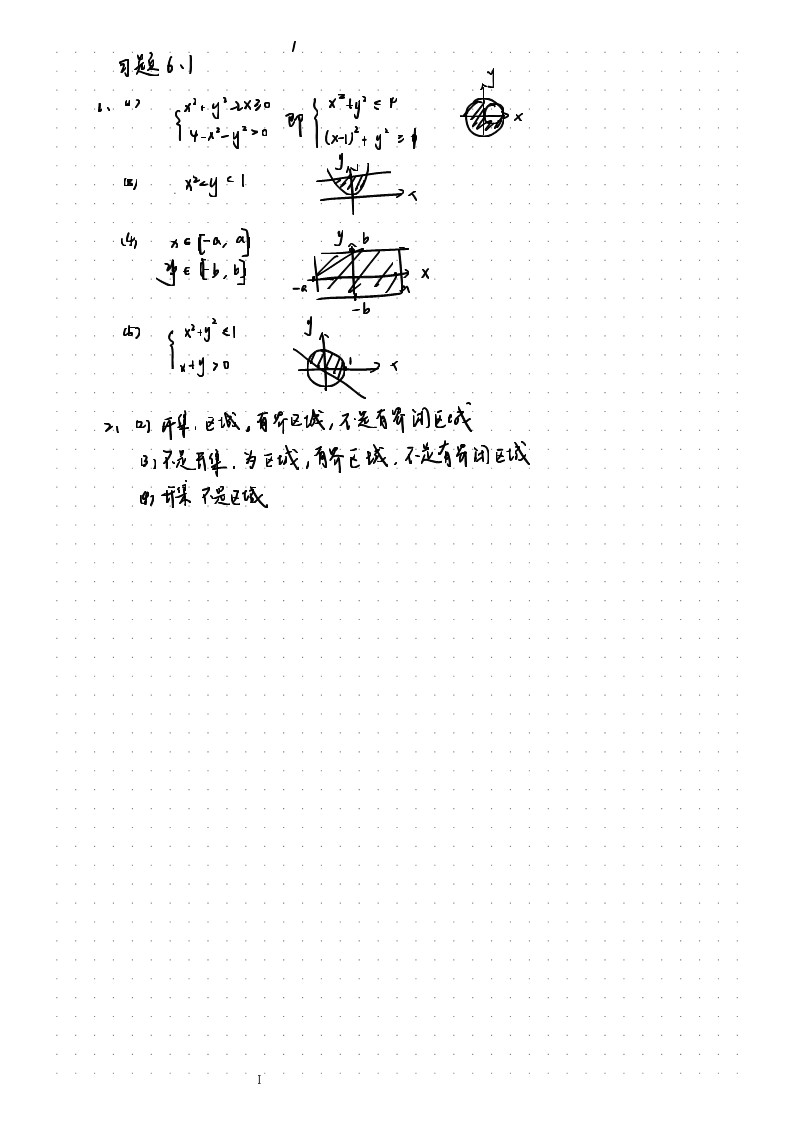 1
习题 6.1
1、(1) { x²+y²-2x≥0 即 { x²+y²≤4 y
4-x²-y²>0 (x-1)²+y²≥1 x
(3) x²<y<1 y 1 x
(4) x∈[-a, a] y b
y∈[-b, b] -a a x
-b
(5) { x²+y²<1 y
x+y>0 1 x
2、(2) 开集、区域，有界区域，不是有界闭区域
(3) 不是开集，为区域，有界区域，不是有界闭区域
(4) 开集 不是区域
I